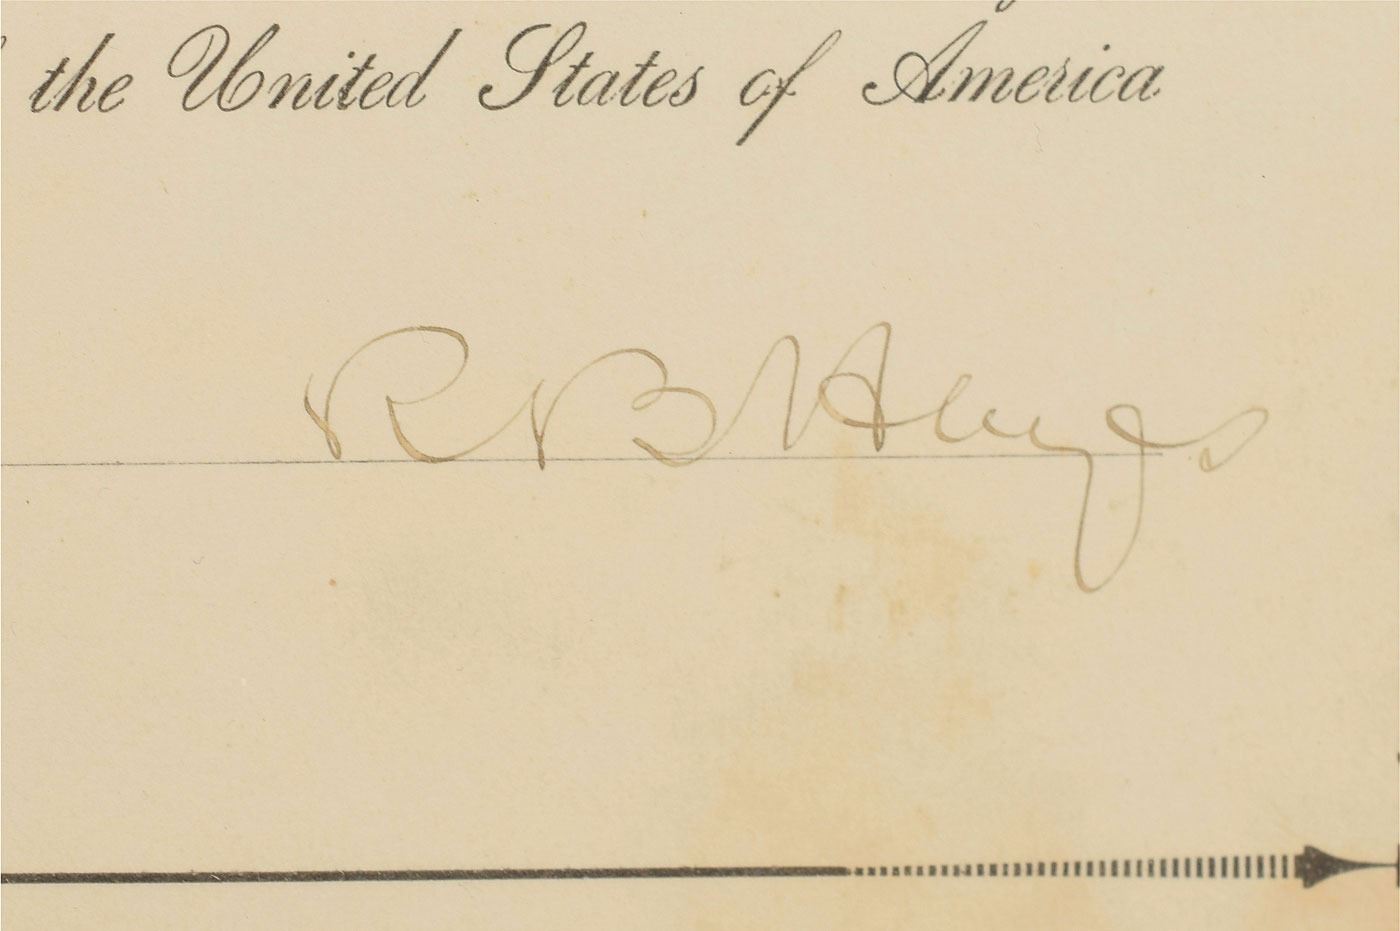 the United States of America
R B Hayes